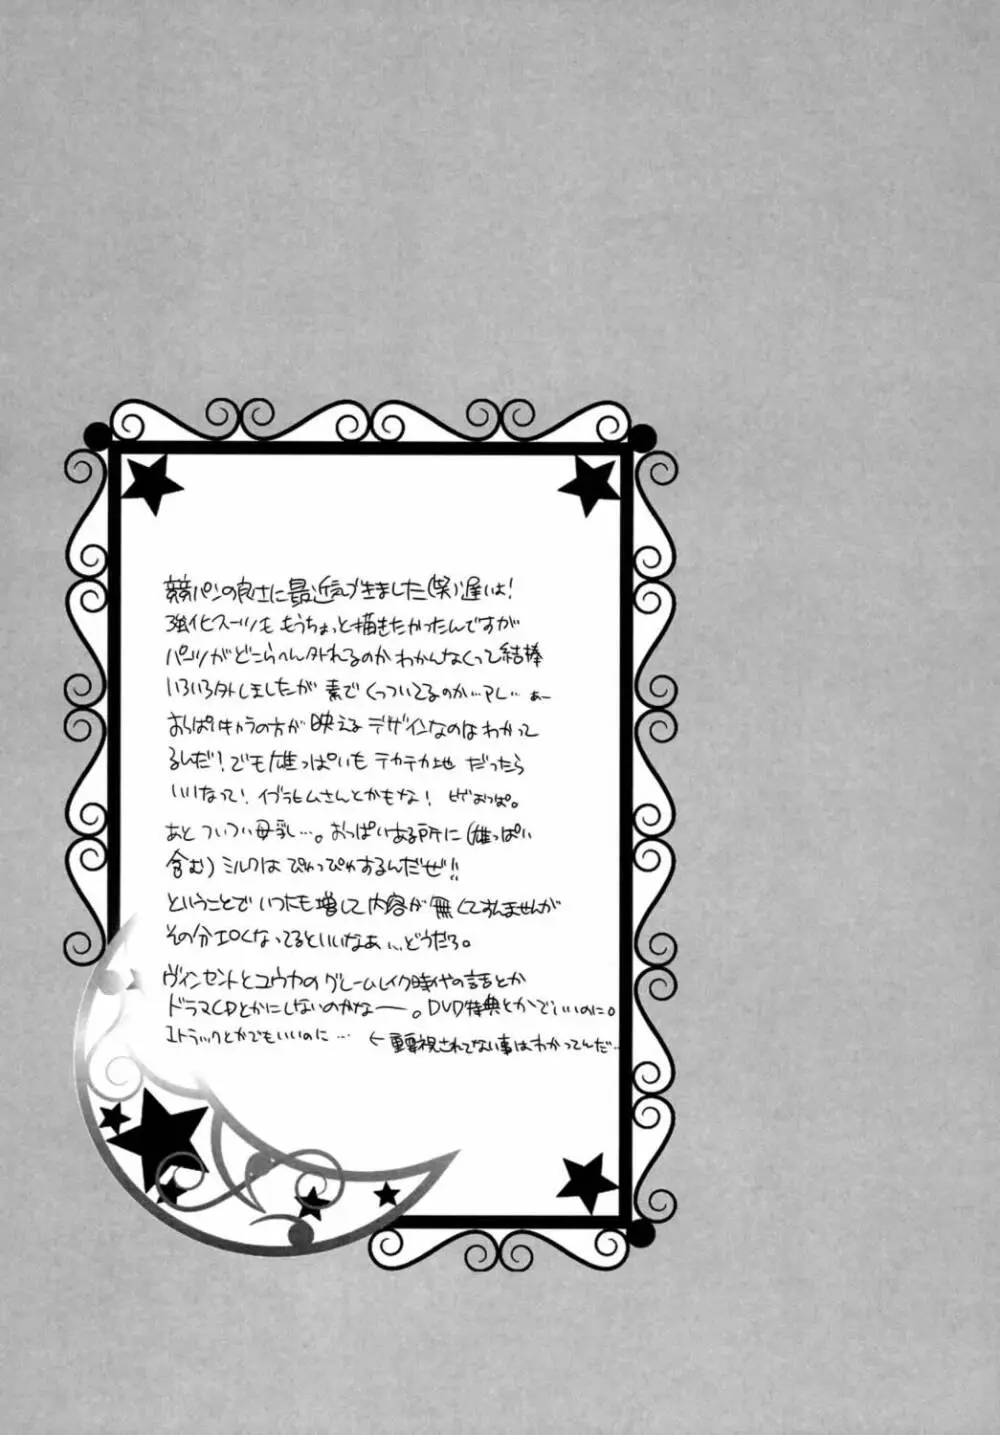 競パンの良さに最近気づきました(笑)遅いよ!
強化スーツも もうちょっと描きたかったんですが
パンツがどこらへん外れるのか わかんなくって結構
いろいろ外しましたが 素でくっついてるのか…アレ… あー
おっぱいキャラの方が 映える デザインなのはわかって
るんだ!でも雄っぱいも テカテカ地 だったら
いいなって!イブラヒムさんとかもな! ヒゲおっぱ。
あと ついつい母乳…。おっぱいある所に(雄っぱい
含む)ミルクは ぴゅっぴゅするんだぜ!!
ということで いつにも増して内容が 無くてすんませんが
その分エロくなってるといいなぁ…どうだろ。
ヴィンセントとユウカの グレームレイク時代の話とか
ドラマCDとかにしないのかなー。DVD特典とかでいいのに。
1トラックとかでもいいのに… ←重要視されてない事はわかってんだ…